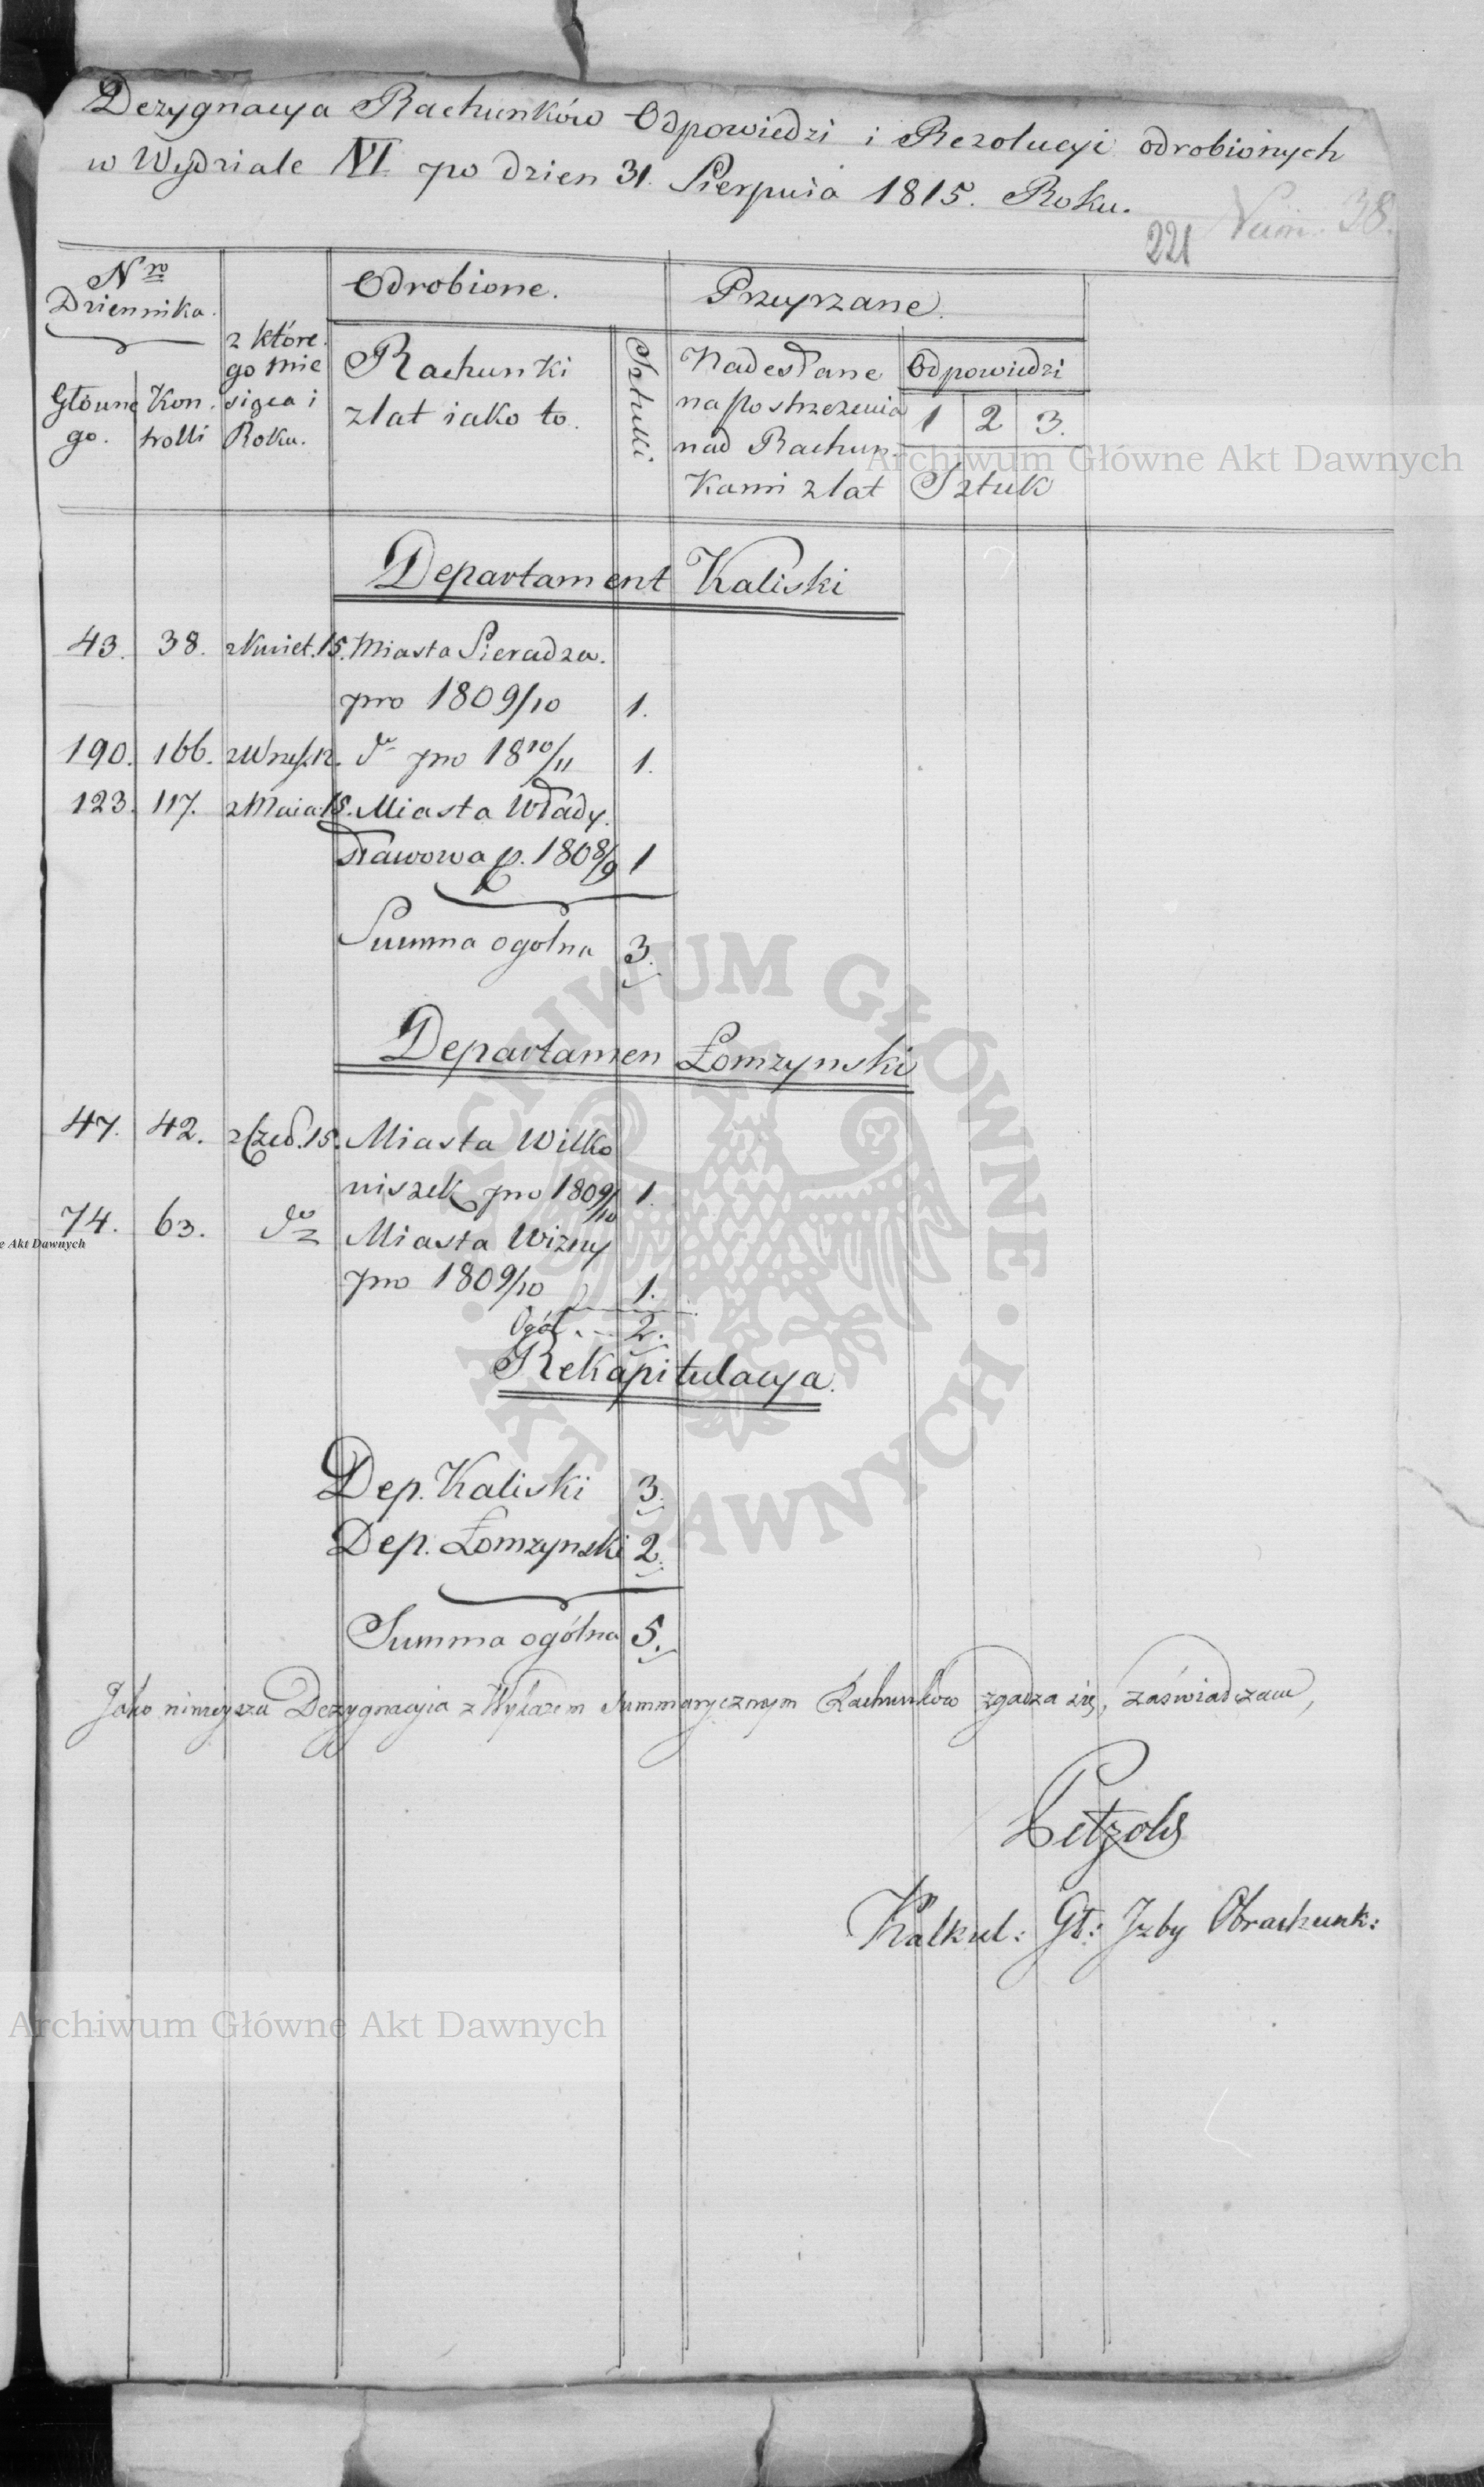 Dezygnacya Rachunków Odpowiedzi i Rezolucyi odrobionych
w Wydziale VI po dzien 31. Sierpnia 1815. Roku.
221 Num. 38.
Nro
Dziennika.
Główne
go.
Kon.
trolli
z które.
go mie
siąca i
Roku.
Odrobione.
Rachunki
z lat iako to.
Sztuki
Przeyrzane.
Nadesłane
na postrzezenia
nad Rachun.
kami z lat
Odpowiedzi
1 2 3.
Sztuk
Archiwum Główne Akt Dawnych
Departament Kaliski
43. 38. z Kwiet. 15. Miasta Sieradza.
pro 1809/10 1.
190. 166. z Wrzes. 12. do pro 1810/11 1.
123. 117. z Maia 15. Miasta Włady.
sławowa p. 1808/9 1
Summa ogolna 3.
Departamen Łomzynski
47. 42. z Czed. 15. Miasta Wilko
niszek pro 1809/10 1.
74. 63. do Miasta Wizny
pro 1809/10 1.
Ogół. 2.
Rekapitulacya.
Dep. Kaliski 3.
Dep. Łomzynski 2.
Summa ogólna 5.
Jako nineysza Dezygnacyia z Wykazem Summarycznym Rachunków zgadza się, zaświadczam,
Petzold
Kalkul: Gł: Izby Obrachunk:
Archiwum Główne Akt Dawnych
e Akt Dawnych
ARCHIWUM GŁÓWNE · AKT DAWNYCH ·